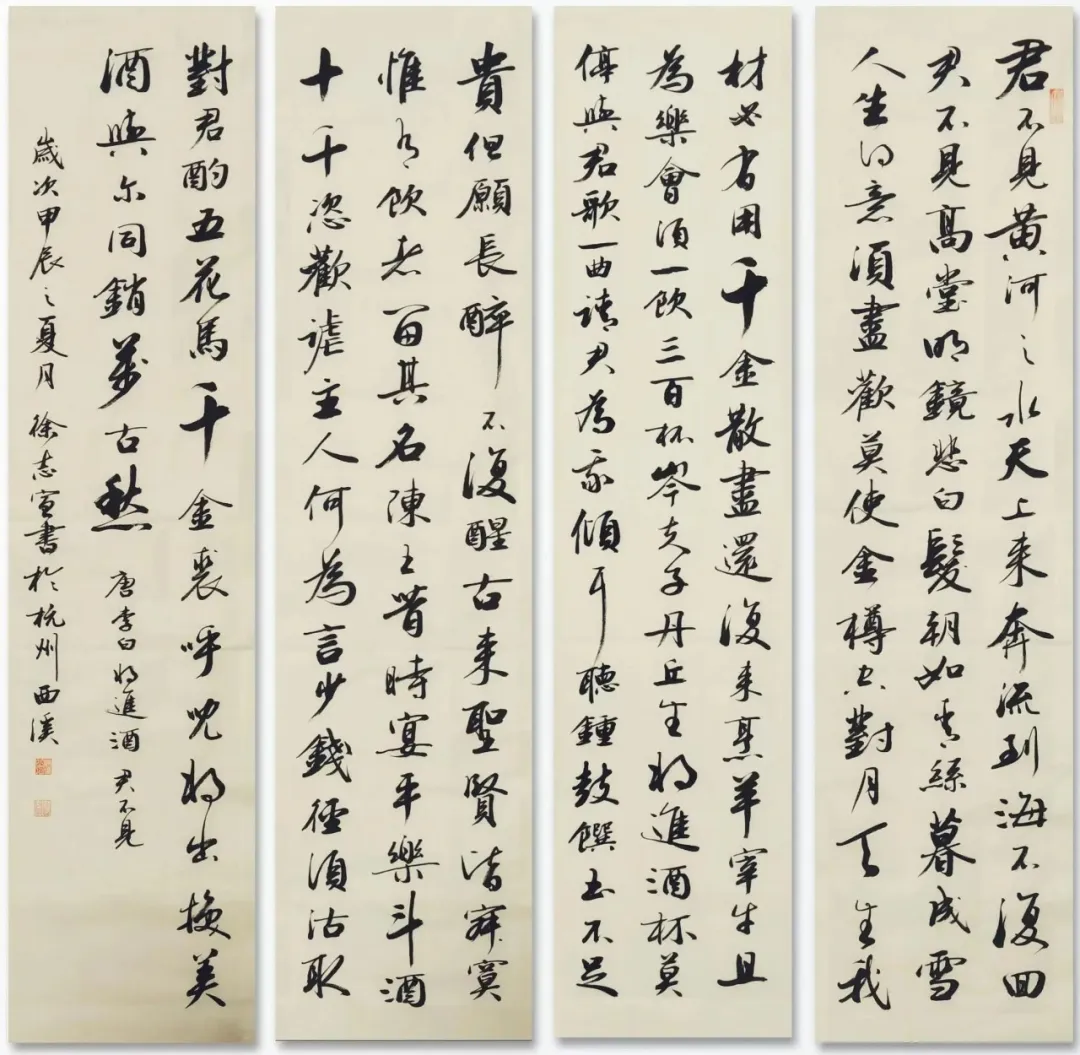 君不見黃河之水天上來奔流到海不復回
君不見高堂明鏡悲白髮朝如青絲暮成雪
人生得意須盡歡莫使金樽空對月天生我
材必有用千金散盡還復來烹羊宰牛且
為樂會須一飲三百杯岑夫子丹丘生將進酒杯莫
停與君歌一曲請君為我傾耳聽鐘鼓饌玉不足
貴但願長醉不復醒古來聖賢皆寂寞
惟有飲者留其名陳王昔時宴平樂斗酒
十千恣歡謔主人何為言少錢徑須沽取
對君酌五花馬千金裘呼兒將出換美
酒與爾同銷萬古愁 唐李白將進酒 君不見
歲次甲辰之夏月 徐志寅書於杭州西溪